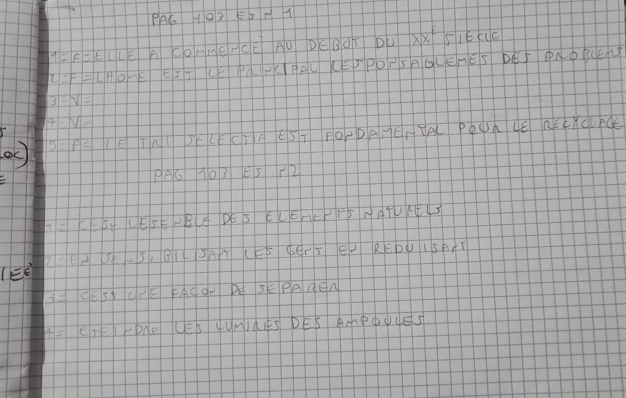 PAG 103 ES N 1
1=F=ELLE A COMMENCE AU DEBUT DU XXE SIECLE
2=F=LHOME EST LE PRINCIPAL RESPONSABLEMES DES PROBLEMS
3=V=
4=V=
5=F=LE TRI SELECTIF EST FONDAMENTAL POUR LE RECYCLAGE
PAG 103 ES N2
1= CEST LESENBLE DES ELEMENTS NATURELS
2=EN SENSIBILISANT LES GENS EN REDUISANT
3= CEST UNE FACON DE SEPARER
4= ETEINDRE LES LUMIRES DES AMPOULES